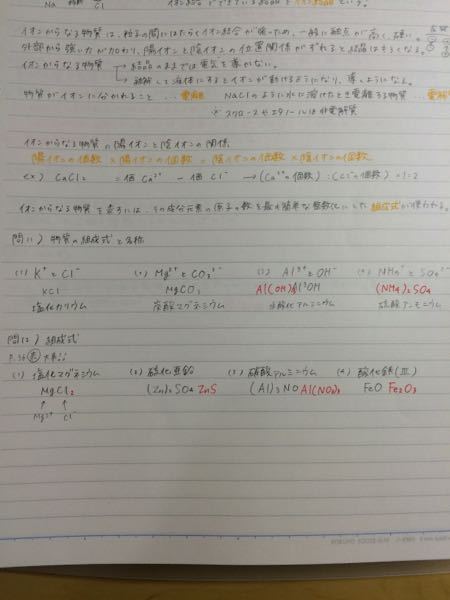 Na Cl イオン結合でできている結晶をイオン結晶という。
イオンからなる物質は、粒子の間にはたらくイオン結合が強いため、一般に融点が高く、硬い。
外部から強い力が加わり、陽イオンと陰イオンの位置関係がずれると結晶はもろくなる。
イオンからなる物質 → 結晶のままでは電気を導かない。
→ 融解して液体にするとイオンが動けるようになり、導くようになる。
物質がイオンに分かれること … 電離 NaClのように水に溶けたとき電離する物質 … 電解
※ スクロースやエタノールは非電解質
イオンからなる物質の陽イオンと陰イオンの関係
陽イオンの価数 × 陽イオンの個数 = 陰イオンの価数 × 陰イオンの個数
ex) CaCl2 = 価 Ca2+ 一価 Cl- → (Ca2+の個数) : (Cl-の個数) = 1:2
イオンからなる物質を表すには、その成分元素の原子の数を最も簡単な整数比にした組成式が使われる。
問11) 物質の組成式と名称
(1) K+ と Cl-
(2) Mg2+ と CO3 2-
(3) Al3+ と OH-
(4) NH4+ と SO4 2-
KCl
MgCO3
Al(OH)3 Al3OH
(NH4)2SO4
塩化カリウム
炭酸マグネシウム
水酸化アルミニウム
硫酸アンモニウム
問12) 組成式
P.56 表 大事!!
(1) 塩化マグネシウム
(2) 硫化亜鉛
(3) 硝酸アルミニウム
(4) 酸化鉄(III)
MgCl2
(Zn)2SO4 ZnS
(Al)3NO Al(NO3)3
FeO Fe2O3
↑ ↑
Mg2+ Cl-